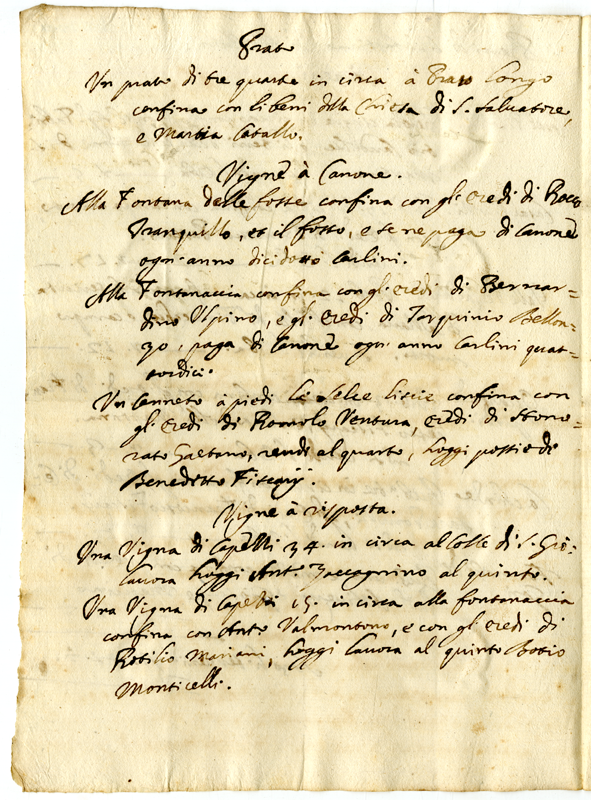 Prato
Un prato di tre quarte in circa à Prato Longo
confina con li beni della Chiesa di S. Salvatore,
e Mattia Catallo.
Vigne à Canone.
Alla Fontana delle fosse confina con gl'eredi di Rocco
Tranquillo, et il fosso, e se ne paga di Canone
ogn'anno dicidotto Carlini.
Alla Fontanaccia confina con gl'eredi di Bernar=
dino Uspino, e gl'eredi di Tarquinio Bellon=
zo. paga di Canone ogn'anno Carlini quat=
tordici.
Un Canneto à piedi le selce liscie confina con
gl'eredi di Romolo Ventura, eredi di
rato Gaetano, rende al quarto, hoggi possiede
Benedetto
Vigne à risposta.
Una Vigna di Capelli 34. in circa al Colle di S. Gio:
lavora hoggi Ant.º Zaccagnino al quinto.
Una Vigna di Capelli 15. in circa alla fontanaccia
confina con Anto Valmontono, e con gl'eredi di
Rotilio Mariani, hoggi lavora al quinto
Monticelli.